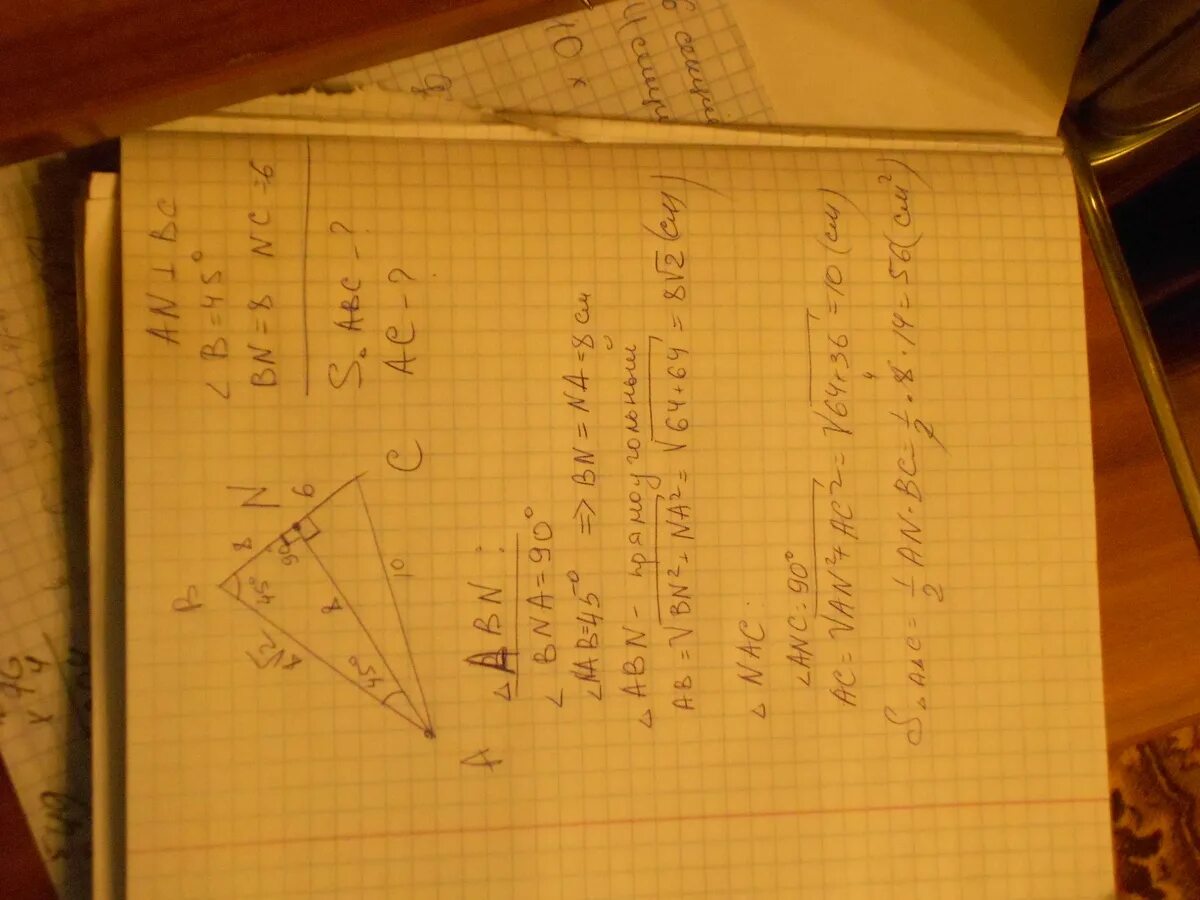 AN ⊥ BC
∠B=45°
BN=8 NC=6
S△ABC-?
AC-?
B
N
C
A
8
6
45°
90°
8
45°
10
△ABN:
∠BNA=90°
∠NAB=45° => BN=NA=8см
△ABN- прямоугольный
AB=√BN²+NA²=√64+64=8√2(см)
△NAC:
∠ANC=90°
AC=√AN²+AC²=√64+36=10(см)
S△ABC=1/2AN·BC=1/2·8·14=56(см²)
4
x 10
x 4